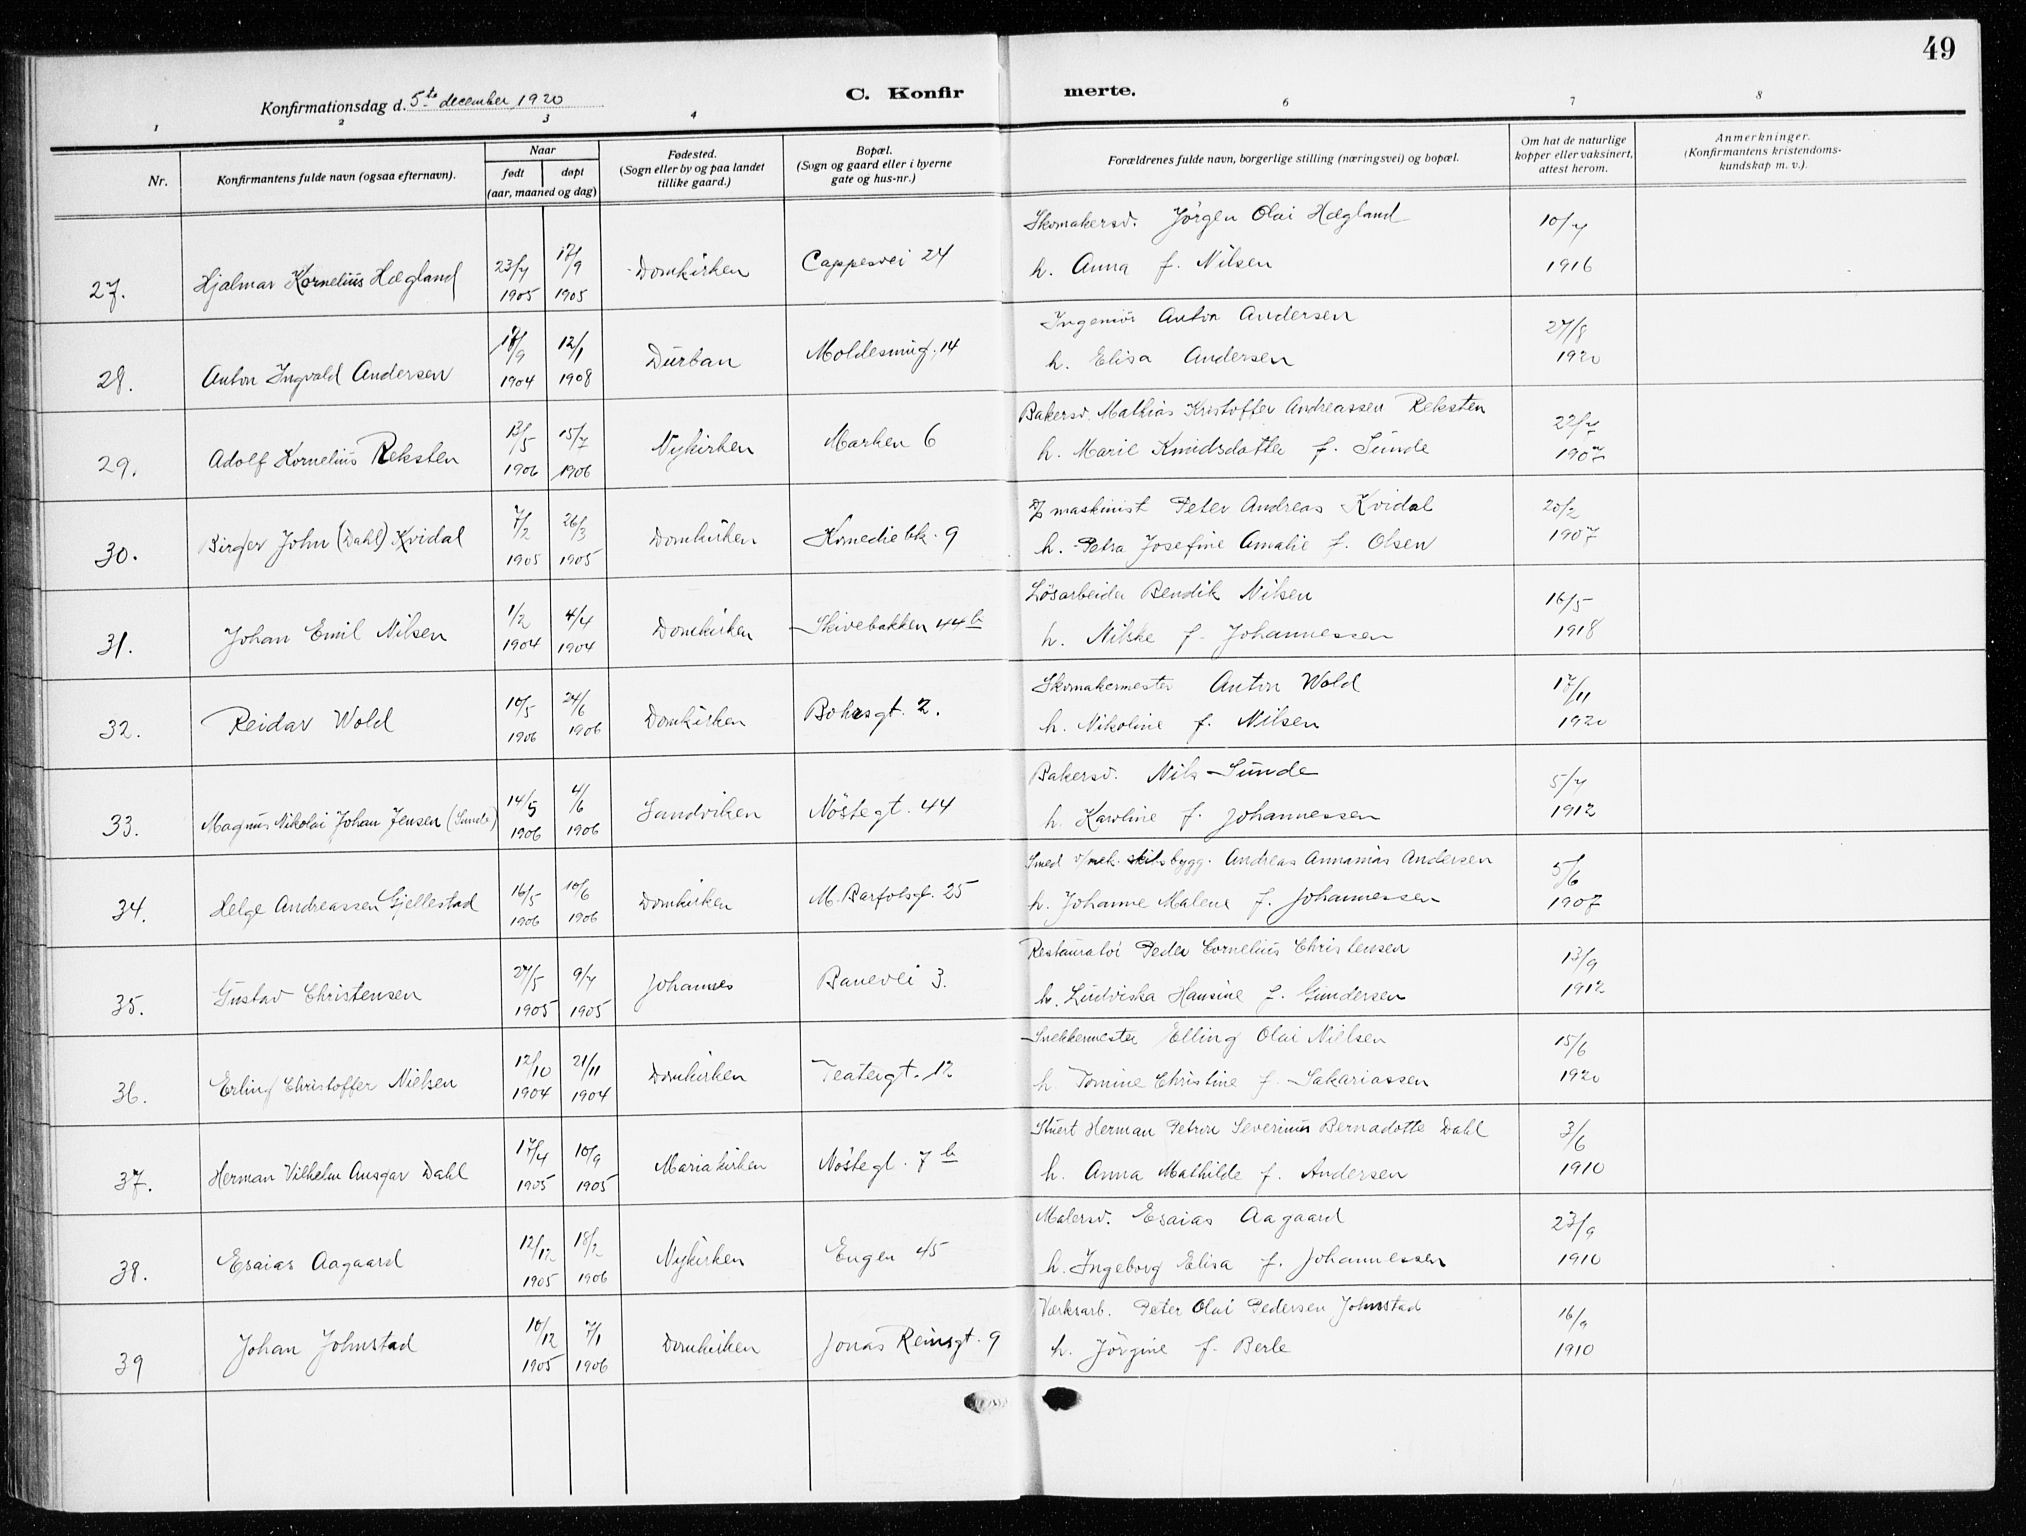 49
Konfirmationsdag d. 5-te december 1920
C. Konfirmerte.
1 2 3 4 6 7 8
Nr.
Konfirmantens fulde navn (ogsaa efternavn).
Naar
født døpt
(aar, maaned og dag)
Fødested.
(Sogn eller by og paa landet
tillike gaard.)
Bopæl.
(Sogn og gaard eller i byerne
gate og hus-nr.)
Forældrenes fulde navn, borgerlige stilling (næringsvei) og bopæl.
Om hat de naturlige
kopper eller vaksinert,
attest herom.
Anmerkninger.
(Konfirmantens kristendoms-
kundskap m. v.).
27. Hjalmar Kornelius Hægland 23/7 1905 17/9 1905 Domkirken Cappesvei 24
Skomakersv. Jörgen Olai Hægland 10/7
h. Anna f. Nilsen 1916
28. Anton Ingvald Andersen /9 1904 12/1 1908 Durban Moldesmug. 14
Ingeniör Anton Andersen 27/8
h. Elisa Andersen 1920
29. Adolf Kornelius Reksten 13/5 1906 15/7 1906 Nykirken Marken 6
Bakersv. Mathias Kristoffer Andreassen Reksten 22/7
h. Marie Knudsdatter f. Sunde 1907
30. Birger John (Dahl) Kvidal 7/2 1905 26/3 1905 Domkirken Komediebk. 9
D/S maskinist Peter Andreas Kvidal 20/2
h. Petra Josefine Amalie f. Olsen 1907
31. Johan Emil Nilsen 1/2 1904 4/4 1904 Domkirken Skivebakken 44 b
Lösarbeider Bendik Nilsen 16/5
h. Nilske f. Johannessen 1918
32. Reidar Wold 10/5 1906 24/6 1906 Domkirken Bohrsgt. 2.
Skomakermester Anton Wold 17/11
h. Nikoline f. Nilsen 1920
33. Magnus Nikolai Johan Jensen (Sunde) 14/5 1906 4/6 1906 Sandviken Nöstegt. 44
Bakersv. Nils Sunde 5/7
h. Karoline f. Johannessen 1912
34. Helge Andreassen Gjellestad 16/5 1906 10/6 1906 Domkirken M. Barfotsgt. 25
Smed v/mek. skibsbygg. Andreas Annanias Andersen 5/6
h. Johanne Malene f. Johannessen 1907
35. Gustav Christensen 27/5 1905 9/7 1905 Johannes Banevei 3.
Restauratör Peder Cornelius Christensen 13/9
h. Ludviska Hansine f. Gundersen 1912
36. Erling Christoffer Nielsen 12/10 1904 21/11 1904 Domkirken Teatergt. 12
Snekkermester Elling Olai Nielsen 15/6
h. Tomine Christine f. Sakariassen 1920
37. Herman Vilhelm Ansgar Dahl 17/4 1905 10/9 1905 Mariakirken Nöstegt. 7 b
Stuert Herman Petron Severinus Bernadotte Dahl 3/6
h. Anna Mathilde f. Andersen 1910
38. Esaias Aagaard 12/12 1905 18/2 1906 Nykirken Engen 45
Malersv. Esaias Aagaard 23/9
h. Ingeborg Elisa f. Johannessen 1910
39 Johan Johnstad 10/12 1905 7/1 1906 Domkirken Jonas Reinsgt. 9
Værksarb. Peter Olai Pedersen Johnstad 16/9
h. Jörgine f. Berle 1910